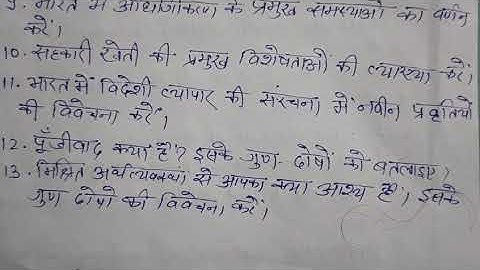 9. भारत में औद्योगीकरण के प्रमुख समस्याओं का वर्णन
करें।
10. सहकारी खेती की प्रमुख विशेषताओं की व्याख्या करें।
11. भारत में विदेशी व्यापार की संरचना में नवीन प्रवृतियों
की विवेचना करें।
12. पूँजीवाद क्या है? इसके गुण-दोषों को बतलाइए।
13. मिश्रित अर्थव्यवस्था से आपका क्या आशय है। इसके
गुण दोषो की विवेचना करें।